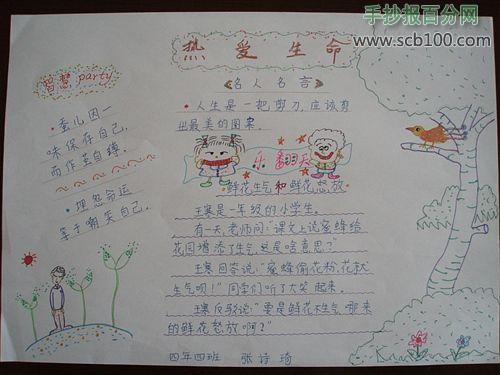 手抄报百分网
www.scb100.com
热爱生命
智慧party
蚕儿因一
味保存自己,
而作茧自缚。
埋怨命运
等于嘲笑自己.
名人名言
人生是一把剪刀,应该剪
出最美的图案.
小翻天
鲜花生气和鲜花怒放
王寒是一年级的小学生。
有一天,老师问:"课文上说蜜蜂给
花园增添了生气,这是啥意思?"
王寒回答说:"蜜蜂偷花粉,花就
生气呗!"同学们听了大笑起来。
王寒反驳说:"要是鲜花不生气,哪来
的鲜花怒放啊?"
四年四班 张诗琦